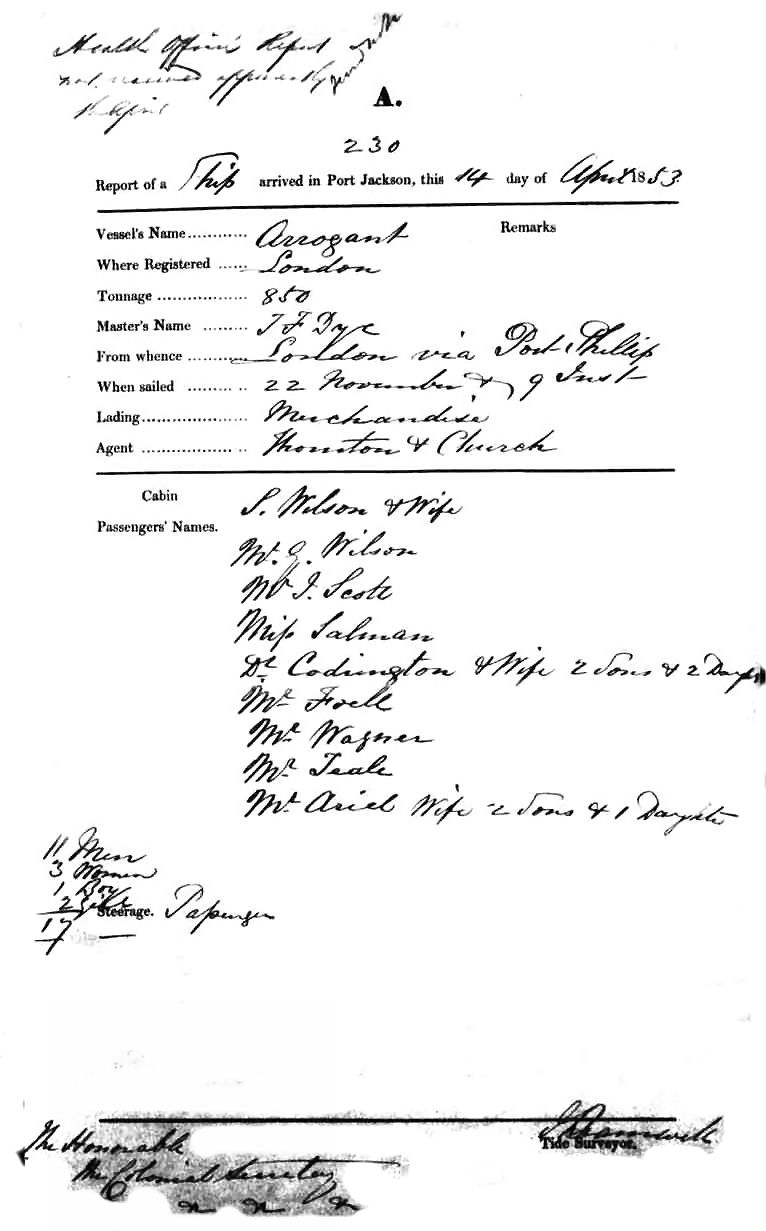 Health Officer's Report
not received apparently
A.
230
Report of a Ship arrived in Port Jackson, this 14 day of April 1853.
Vessel's Name............ Arrogant Remarks
Where Registered ...... London
Tonnage .................. 850
Master's Name ......... J F Dye
From whence ............ London via Port Phillip
When sailed ......... .. 22 November & 9 Inst
Lading..................... Merchandise
Agent ..................... Thornton & Church
Cabin
Passengers' Names.
S. Wilson & Wife
Mr. G. Wilson
Mr J. Scott
Miss Salman
Dr Codrington & Wife 2 Sons & 2 Daugs
Mr Foell
Mr Wagner
Mr Teale
Mr Ariel Wife 2 Sons & 1 Daughter
11 Men
3 Women
1 Boy
2 Girls
Steerage. Passengers
17
Tide Surveyor.
The Honorable
The Colonial Secretary